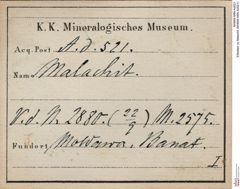 K. K. Mineralogisches Museum.
Acq. Post A.d. 521.
Name Malachit.
V. d. N. 2880. (22/9) M. 2575.
Fundort Moldawa, Banat.
I